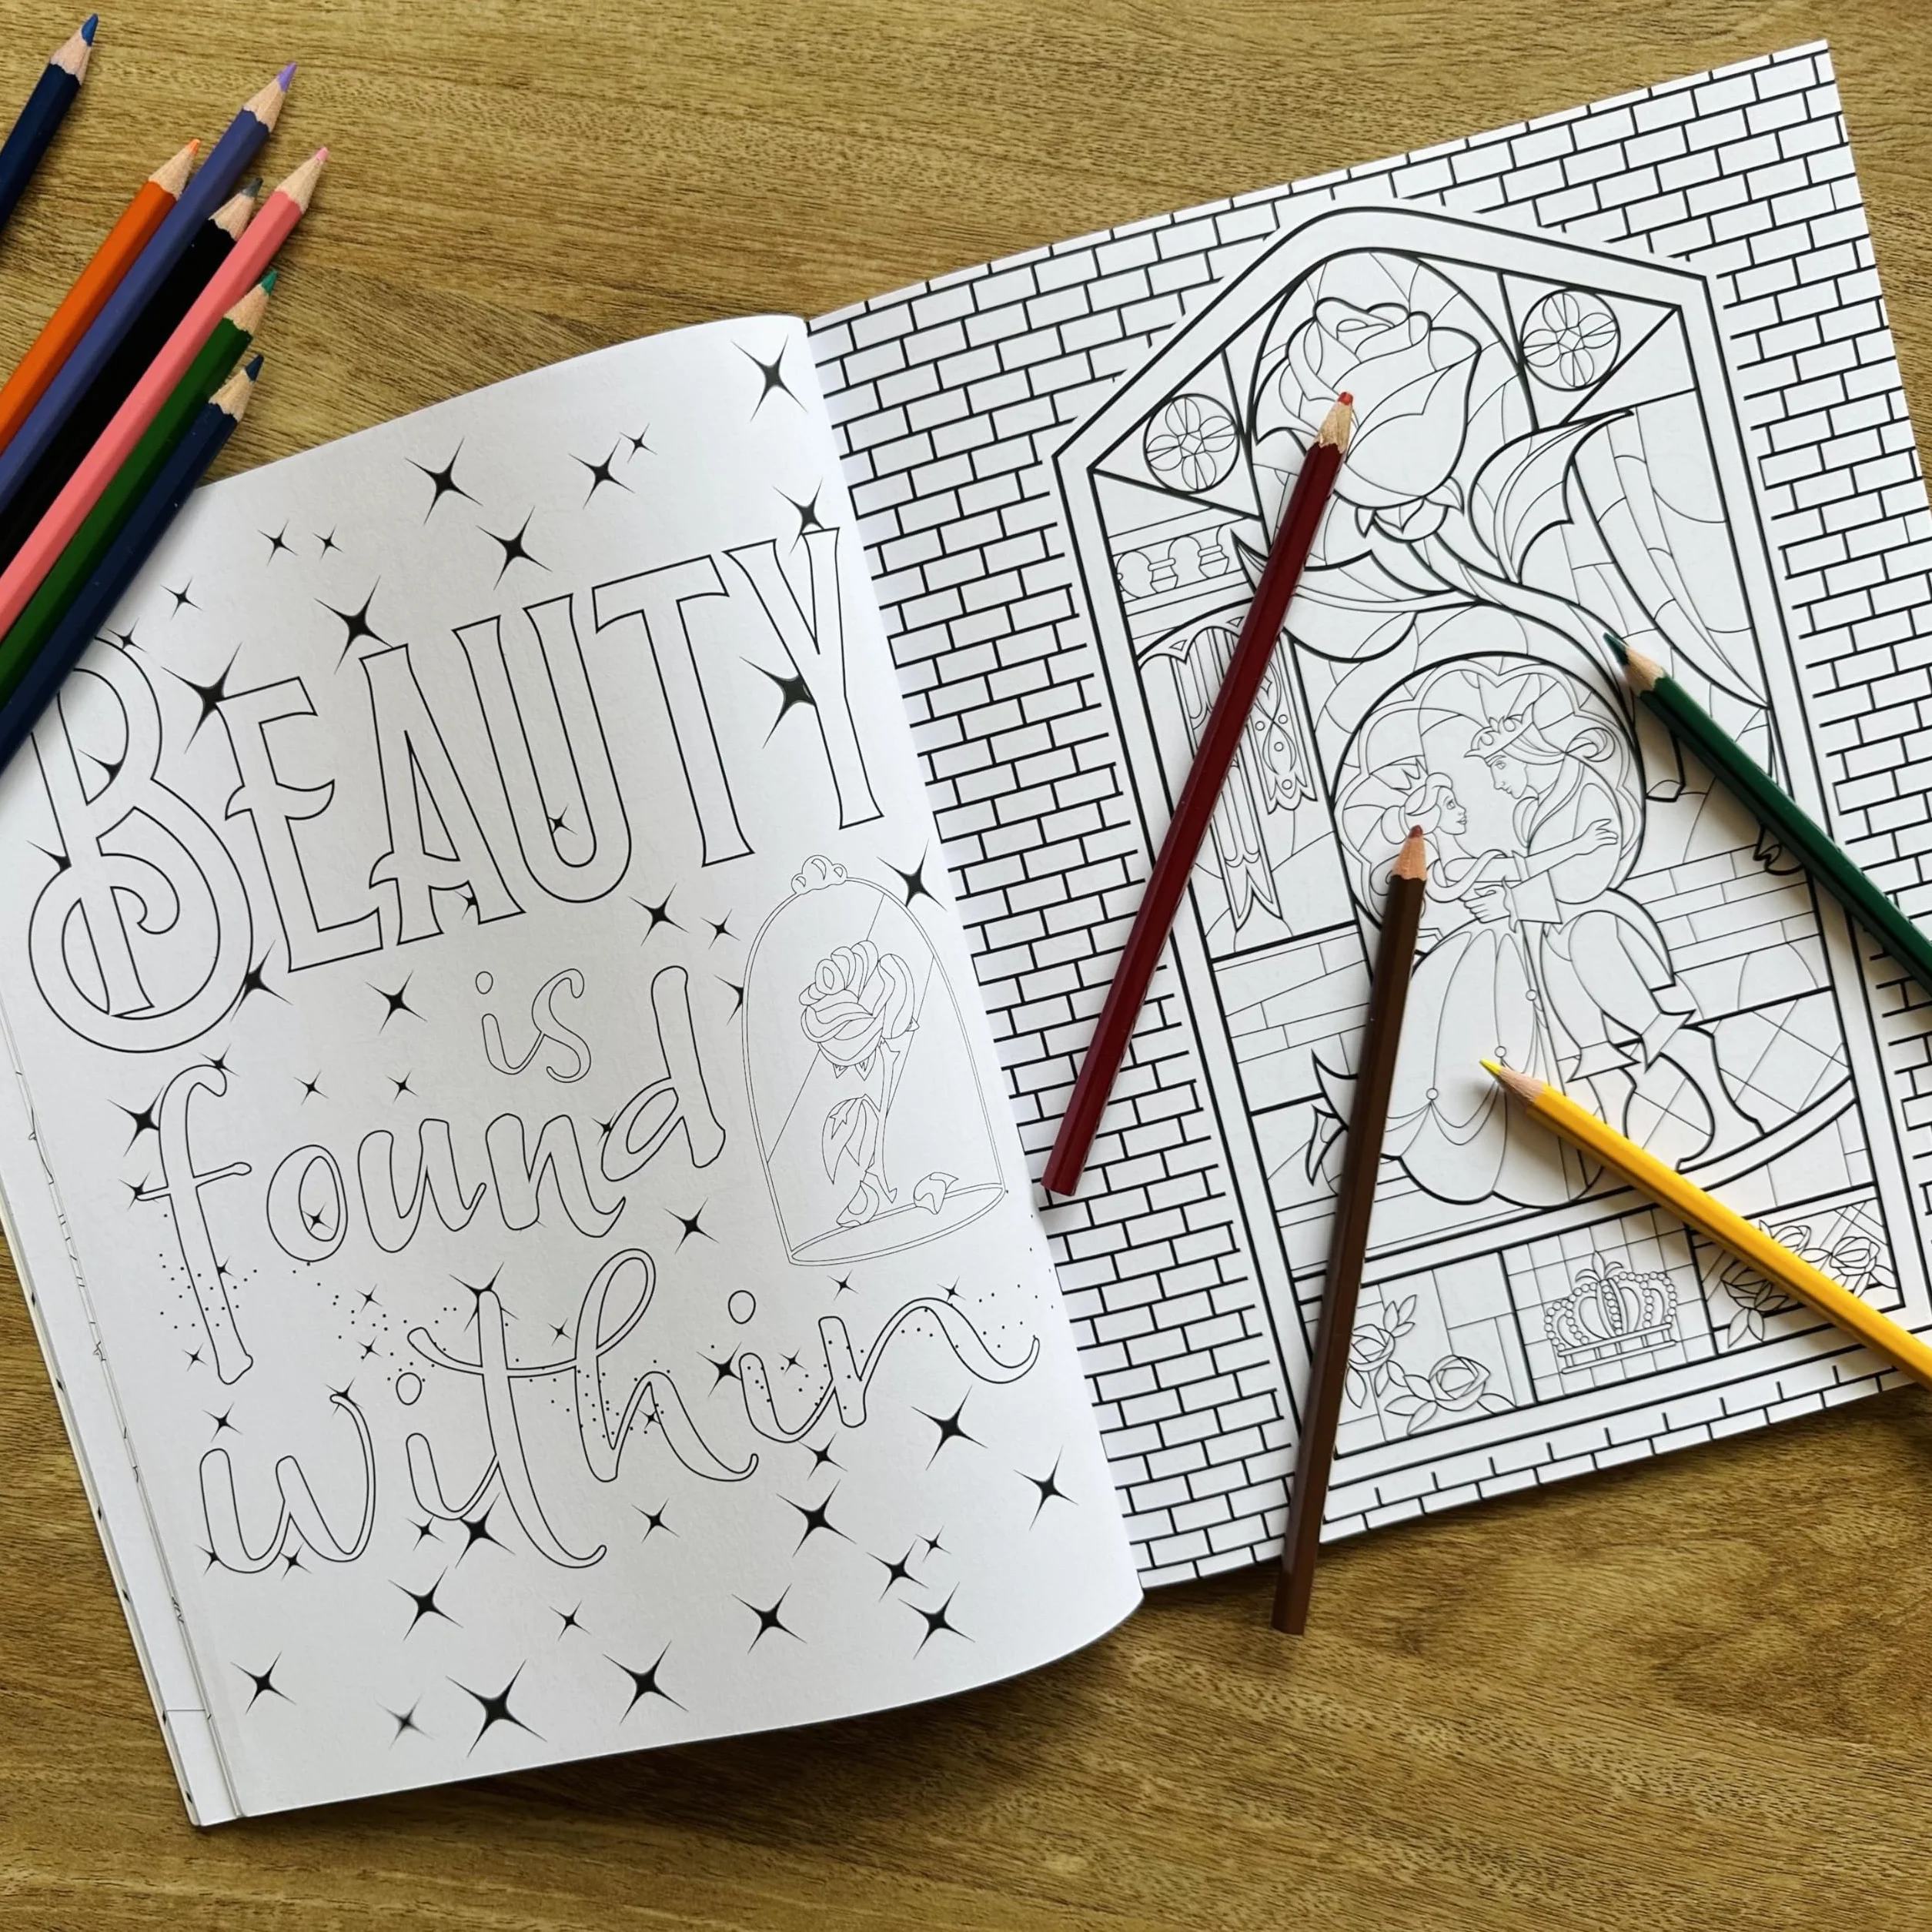 BEAUTY
is
found
within